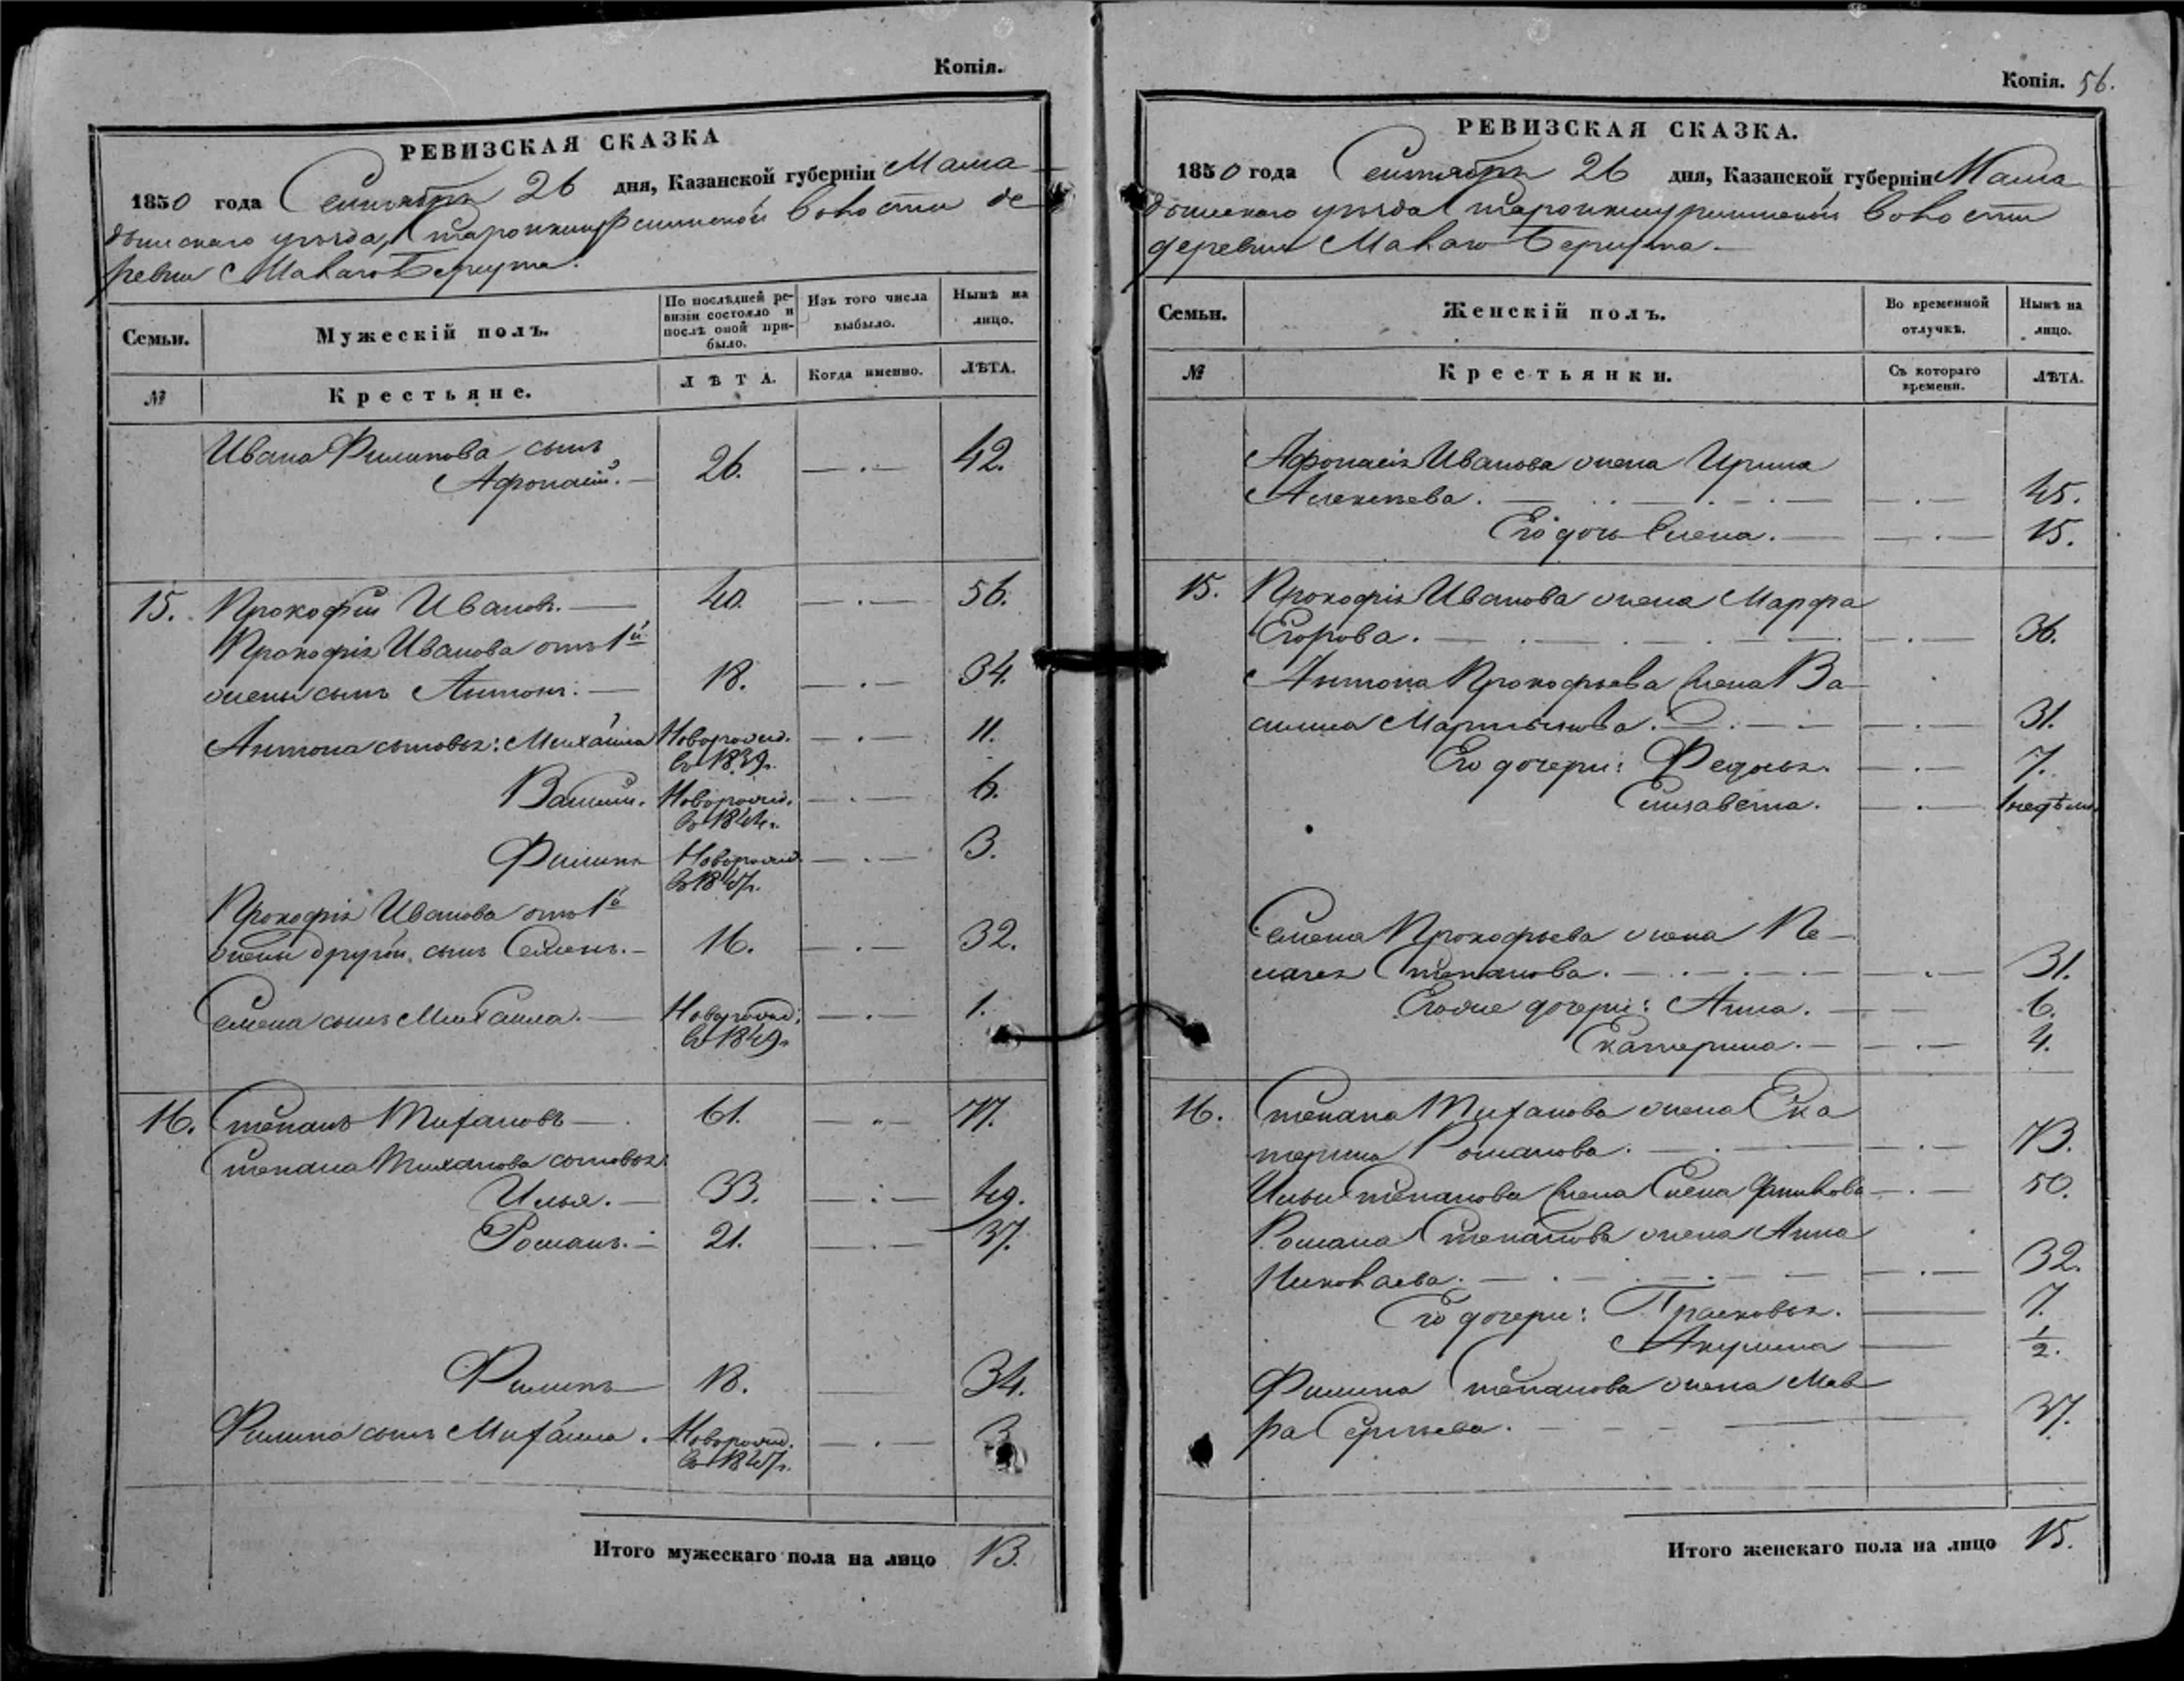 Копія.
РЕВИЗСКАЯ СКАЗКА
1850 года Сентября 26 дня, Казанской губерніи Мама
дышскаго уѣзда, волости де
ревни Малаго
Семьи.
Мужескій полъ.
По послѣдней ре-
визіи состояло и
послѣ оной при-
было.
Изъ того числа
выбыло.
Нынѣ на
лицо.
№
Крестьяне.
ЛѢТА.
Когда именно.
ЛѢТА.
Ивана Филипова сынъ
Афонасій. — 26. — . — 42.
15. Прокофій Ивановъ. — 40. — . — 56.
Прокофія Иванова отъ 1й
жены сынъ Антонъ. — 18. — . — 34.
Антона сыновья: Михайла Новорожд. — . — 11.
въ 1839г.
Василій. Новорожд. — . — 6.
въ 1844г.
Филипъ Новорожд. — . — 3.
въ 1847г.
Прокофія Иванова отъ 1й
жены другой сынъ Семенъ. — 16. — . — 32.
Семена сынъ Михайла. — Новорожд. — . — 1.
въ 1849г.
16. Степанъ Тихановъ — 61. — „ — 77.
Степана Тиханова сыновья
Илья. — 33. — . — 49.
Романъ. — 21. — . — 37.
Филипъ 18. — 34.
Филипа сынъ Михайла. Новорожд. — . — 3
въ 1847г.
Итого мужескаго пола на лицо 13.
Копія. 56.
РЕВИЗСКАЯ СКАЗКА.
1850 года Сентября 26 дня, Казанской губерніи Мама
дышскаго уѣзда волости
деревни Малаго
Семьи.
Женскій полъ.
Во временной
отлучкѣ.
Нынѣ на
лицо.
№
Крестьянки.
Съ котораго
времени.
ЛѢТА.
Афонасія Иванова жена Ирина
Алексѣева. — . — 45.
Его дочь Елена. — . — 15.
15. Прокофія Иванова жена Марфа
Егорова. — . — 36.
Антона Прокофьева жена Ва
силиса Мартынова. — . — 31.
Его дочери: Федосья. — . — 7.
Елизавета. — . — 1 недѣли
Семена Прокофьева жена Пе
лагея Степанова. — . — 31.
Егоже дочери: Анна. — 6.
Екатерина. — . — 4.
16. Степана Тиханова жена Ека
терина Романова. — . — 73.
Ильи Степанова жена Елена — . — 50.
Романа Степанова жена Анна
Николаева. — . — 32.
Его дочери: Прасковья. — 7.
Акулина — 1/2.
Филипа Степанова жена Мав
ра Сергѣева. — 37.
Итого женскаго пола на лицо 15.